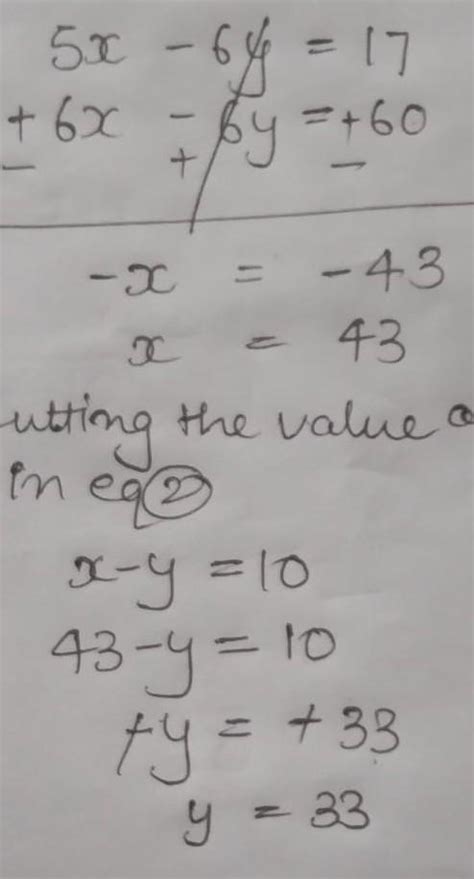 5x - 6y = 17
+ 6x - 6y = +60
- + -
-x = -43
x = 43
utting the value
in eq ②
x-y = 10
43-y = 10
+y = +33
y = 33